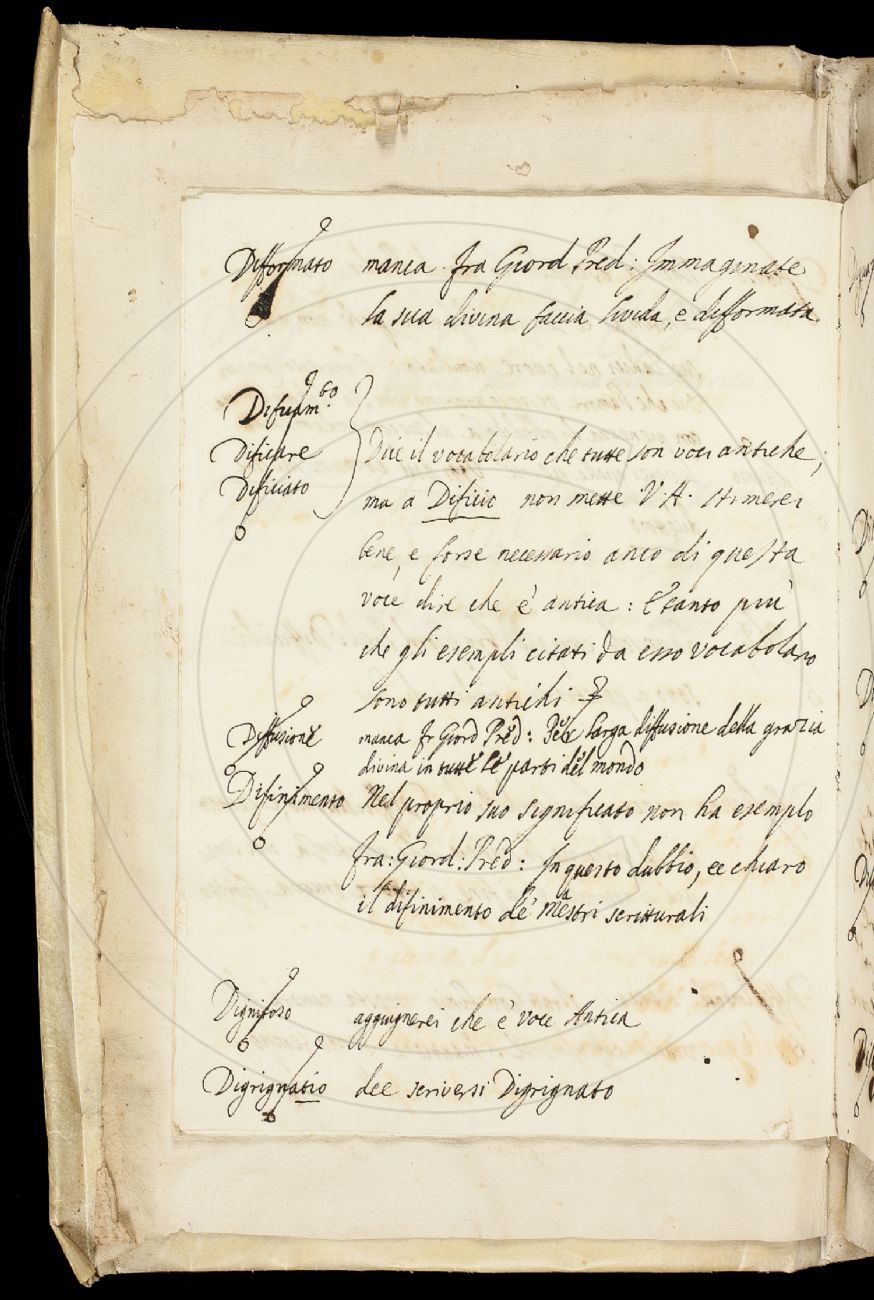 Difformato manca fra Giord Pred: Immaginate
la sua divina faccia livida, e difformata.
Dificam.to
Dificare Dice il vocabolario che tutte son voci antiche;
Dificiato ma a Dificio non mette V. A. stimerei
bene, e forse necessario anco di questa
voce dire che è antica: E tanto più
che gli esempli citati da esso vocabolario
sono tutti antichi
Diffusione manca Fr Giord Pred: larga diffusione della grazia
divina in tutte le parti del mondo
Difinimento Nel proprio suo significato non ha esemplo
fra: Giord: Pred: In questo dubbio, ee chiaro
il difinimento de' Maestri scritturali
Dignitoso aggiugnerei che è voce Antica
Digrignatio dee scriversi Digrignato